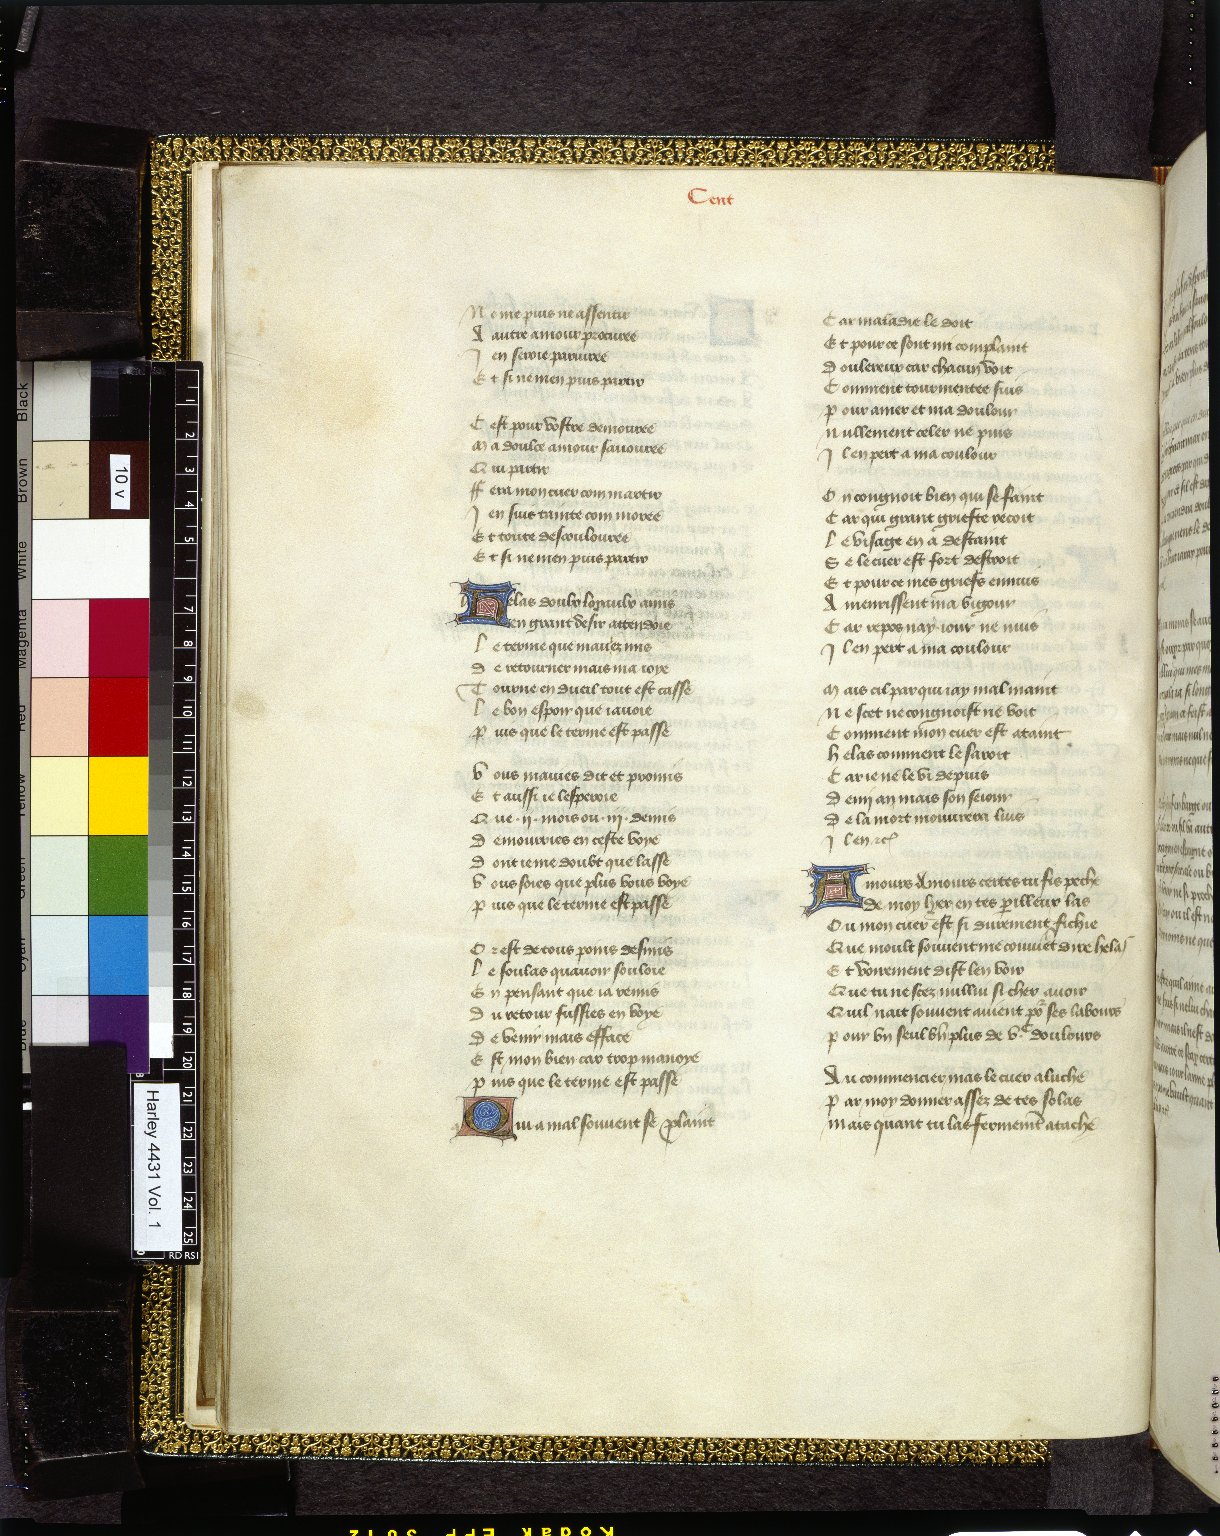 Cent
Ne me puis ne assentir
A autre amour procuree
J en seroie parjuree
Et si ne men puis partir
C est pour vostre demouree
Ma doulce amour savouree
Qui partir
ffera mon cuer com martir
J en suis tainte com moree
Et toute descoulouree
Et si ne men puis partir
Helas doulz loyaulx amis
en grant desir attendoie
Le terme que mauez mis
De retourner mais ma ioye
Tourne en dueil tout est casse
Le bon espoir que iavoie
Puis que le terme est passe
Vous mavies dit et promis
Et aussi ie lesperoie
Que .ii. mois ou .iii. demis
Demourries en ceste voye
Dont ie me doubt que lasse
Vous soies que plus vous voye
Puis que le terme est passe
Or est de tous poins desmis
Le soulas quavoir souloie
En pensant que ia remis
Du retour fussies en voye
De venir mais efface
Est mon bien car trop manoye
Puis que le terme est passe
Qui a mal souvent se plaint
Car maladie le doit
Et pour ce sont mi complaint
Doulereux car chacun voit
Comment tourmentee suis
Pour amer et ma doulour
Nullement celer ne puis
Il en pert a ma coulour
On congnoit bien qui se faint
Car qui grant griefte recoit
Le visage en a destaint
Se le cuer est fort destroit
Et pour ce mes griefs ennuis
Amenrissent ma vigour
Car repos nay iour ne nuis
Il en pert a ma coulour
Mais cil par qui iay mal maint
Ne scet ne congnoist ne voit
Comment mon cuer est ataint
Helas comment le saroit
Car ie ne le vi depuis
Demi an mais son seiour
De la mort mouvrera luis
Il en. etc
Amours Amours certes tu fis peche
de moy lier en tes perilleux las
Ou mon cuer est si durement fichie
Que moult souvent me couvient dire helas
Et voirement dist len voir
Que tu ne scez nullui si cher avoir
Quil nait souvent avient pour ses labours
Pour un seul bien plus de v.c doulours
Au commencier mas le cuer aluche
Par moy donner assez de tes solas
Mais quant tu las ferment atache
10 v
Harley 4431 Vol. 1
Black
Brown
White
Magenta
Red
Yellow
Green
Cyan
Blue
1
2
3
4
5
7
8
9
10
11
12
13
14
15
16
17
18
19
20
21
22
23
24
25
Kodak EPP